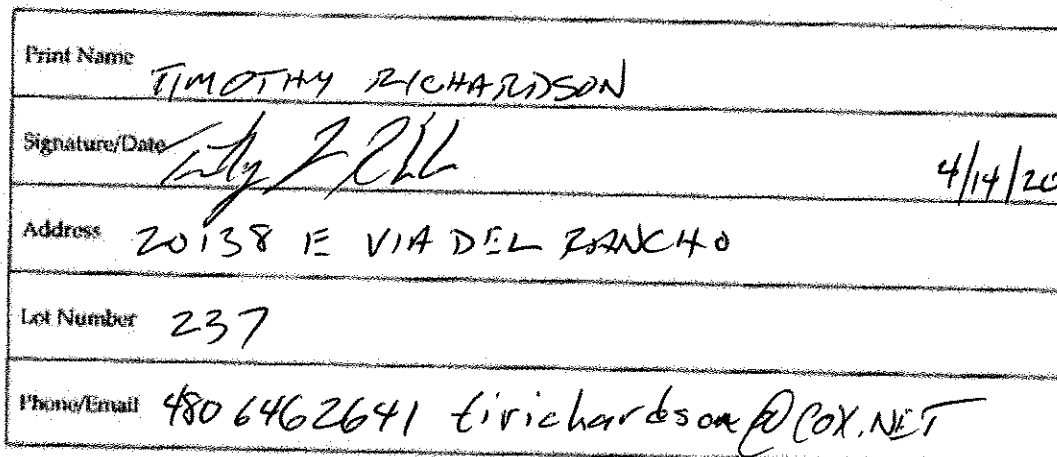 Print Name TIMOTHY RICHARDSON
Signature/Date 4/14/20
Address 20138 E VIA DEL RANCHO
Lot Number 237
Phone/Email 480 646 2641 tirichardson@COX.NET